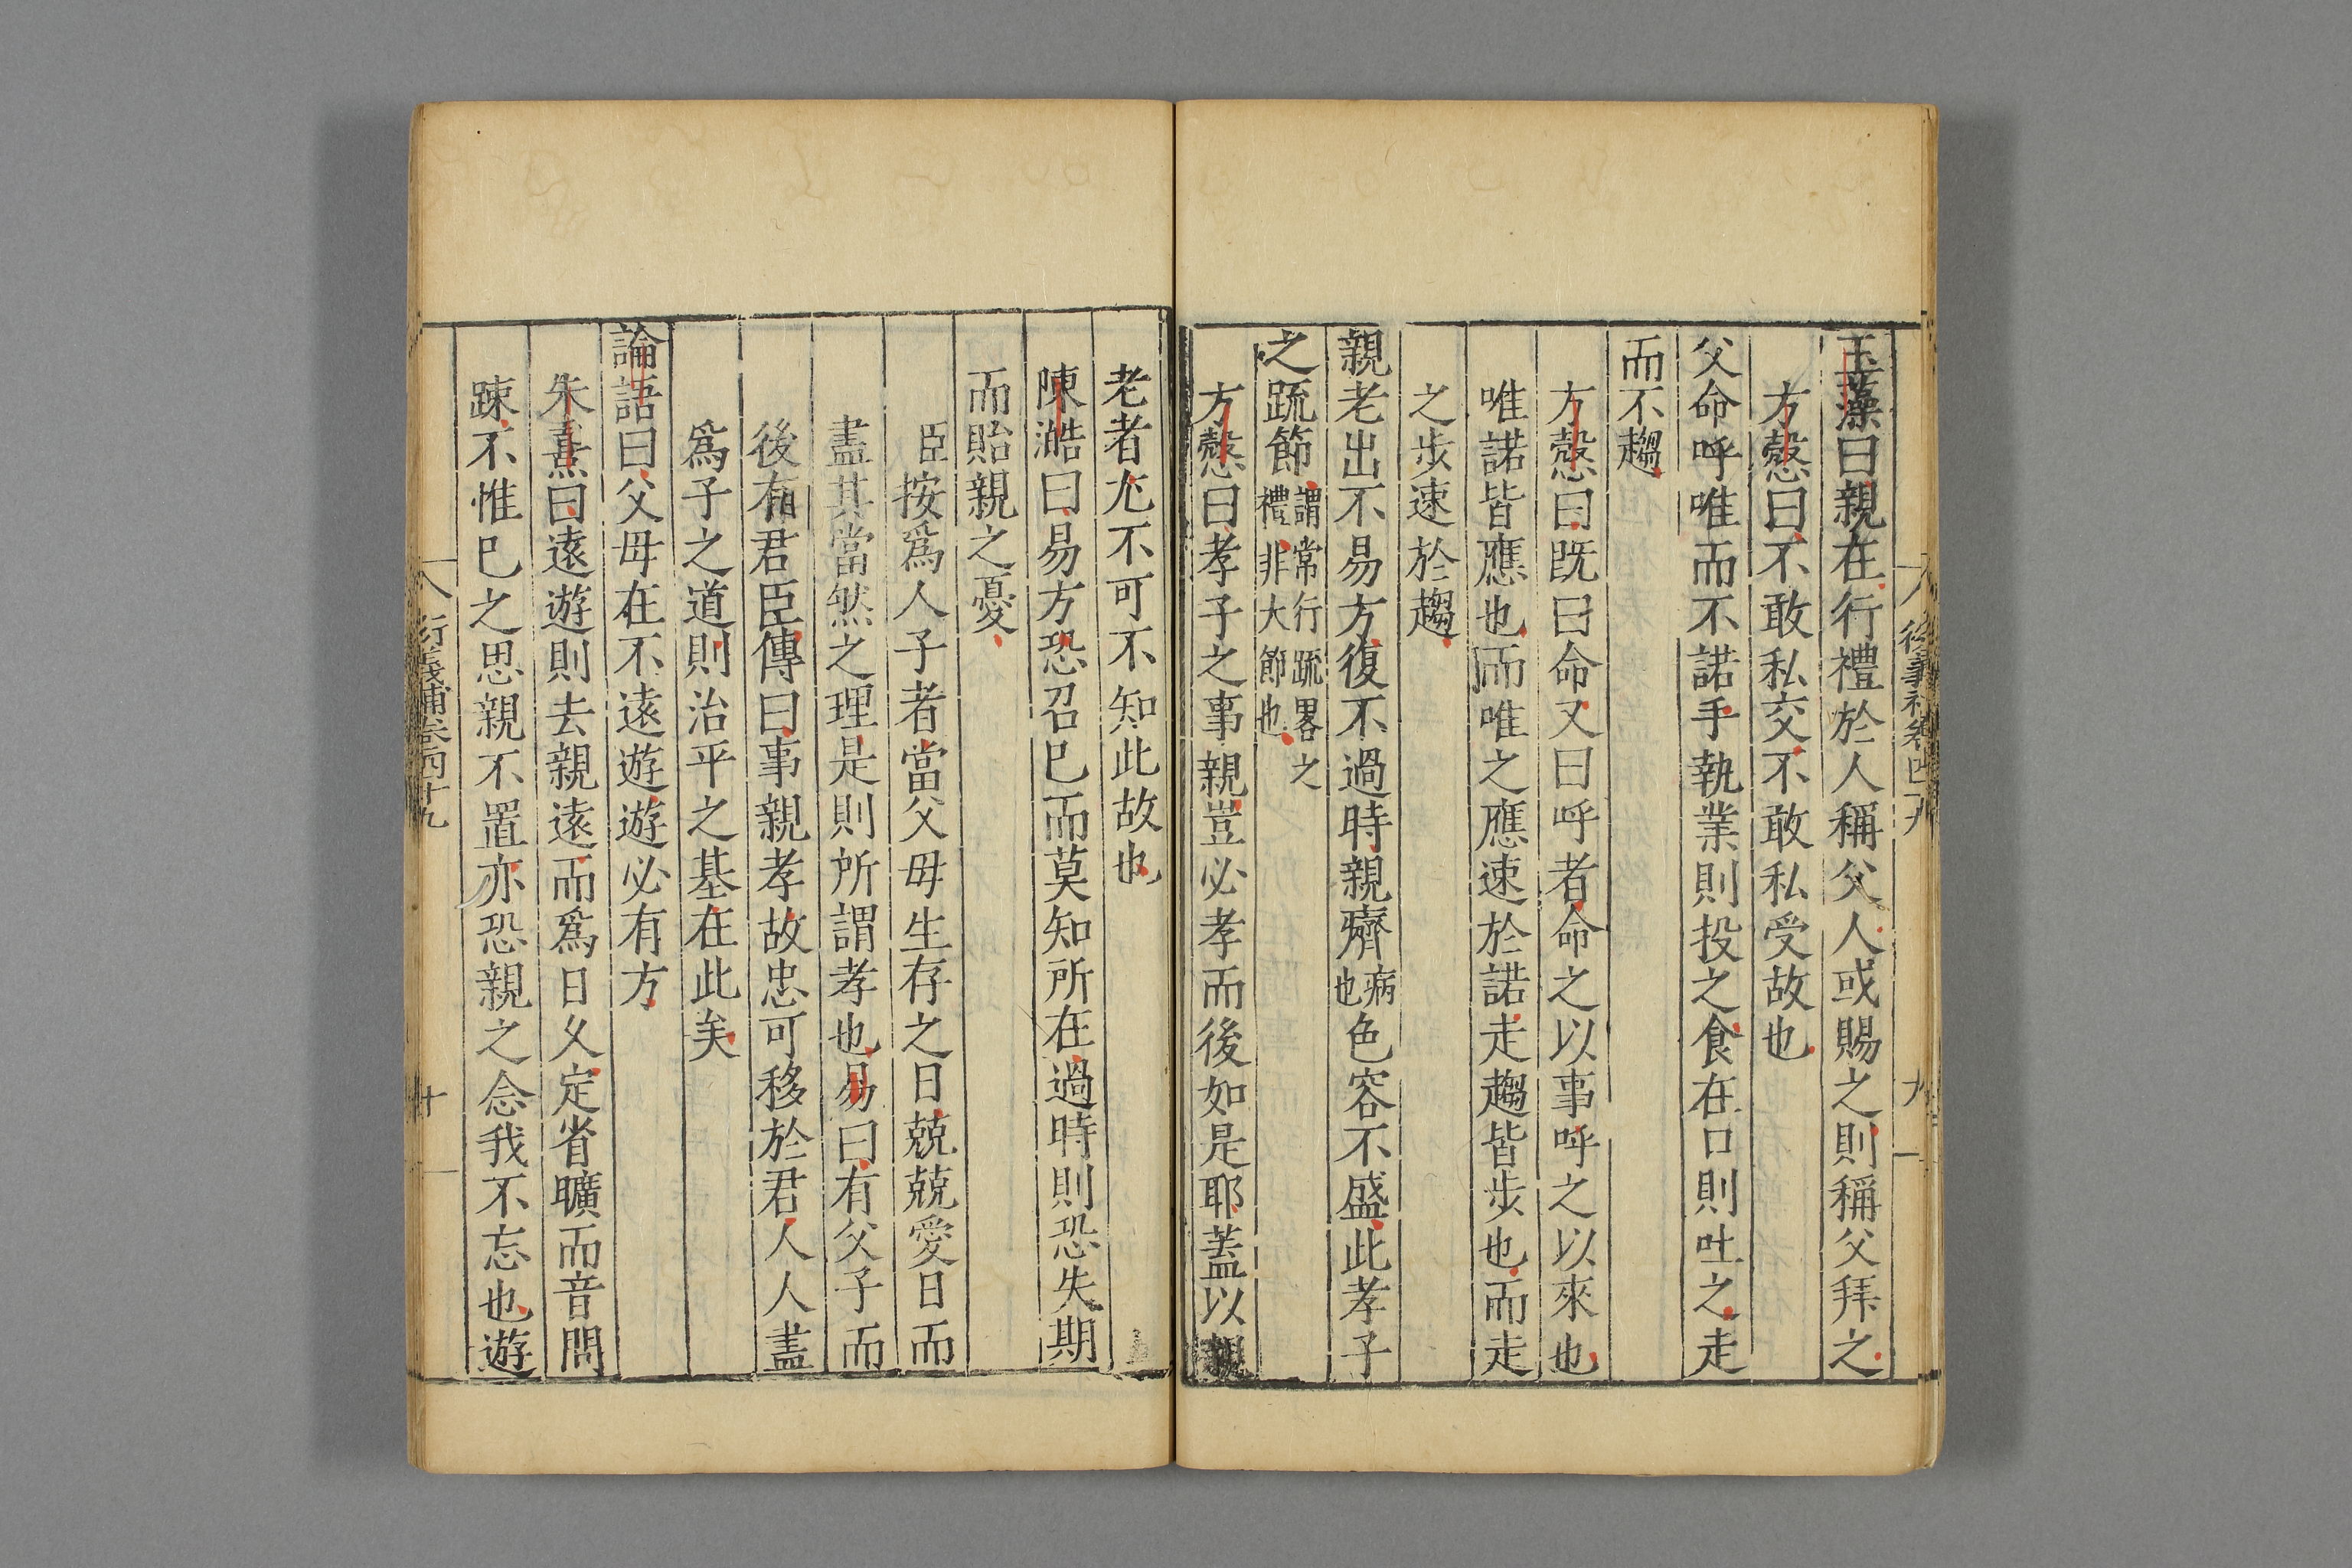 玉藻曰親在行禮於人稱父人或賜之則稱父拜之
方慤曰不敢私交不敢私受故也
父命呼唯而不諾手執業則投之食在口則吐之走
而不趨
方慤曰旣曰命又曰呼者命之以事呼之以來也
唯諾皆應也而唯之應速於諾走趨皆步也而走
之步速於趨
親老出不易方復不過時親癠病也色容不盛此孝子
之疏節謂常行疏畧之禮非大節也
方慤曰孝子之事親豈必孝而後如是耶蓋以親
老者尤不可不知此故也
陳澔曰易方恐召已而莫知所在過時則恐失期
而貽親之憂
臣按爲人子者當父母生存之日兢兢愛日而
盡其當然之理是則所謂孝也易曰有父子而
後有君臣傳曰事親孝故忠可移於君人人盡
爲子之道則治平之基在此矣
論語曰父母在不遠遊遊必有方
朱熹曰遠遊則去親遠而爲日久定省曠而音問
踈不惟已之思親不置亦恐親之念我不忘也遊
衍義補卷四十九
十